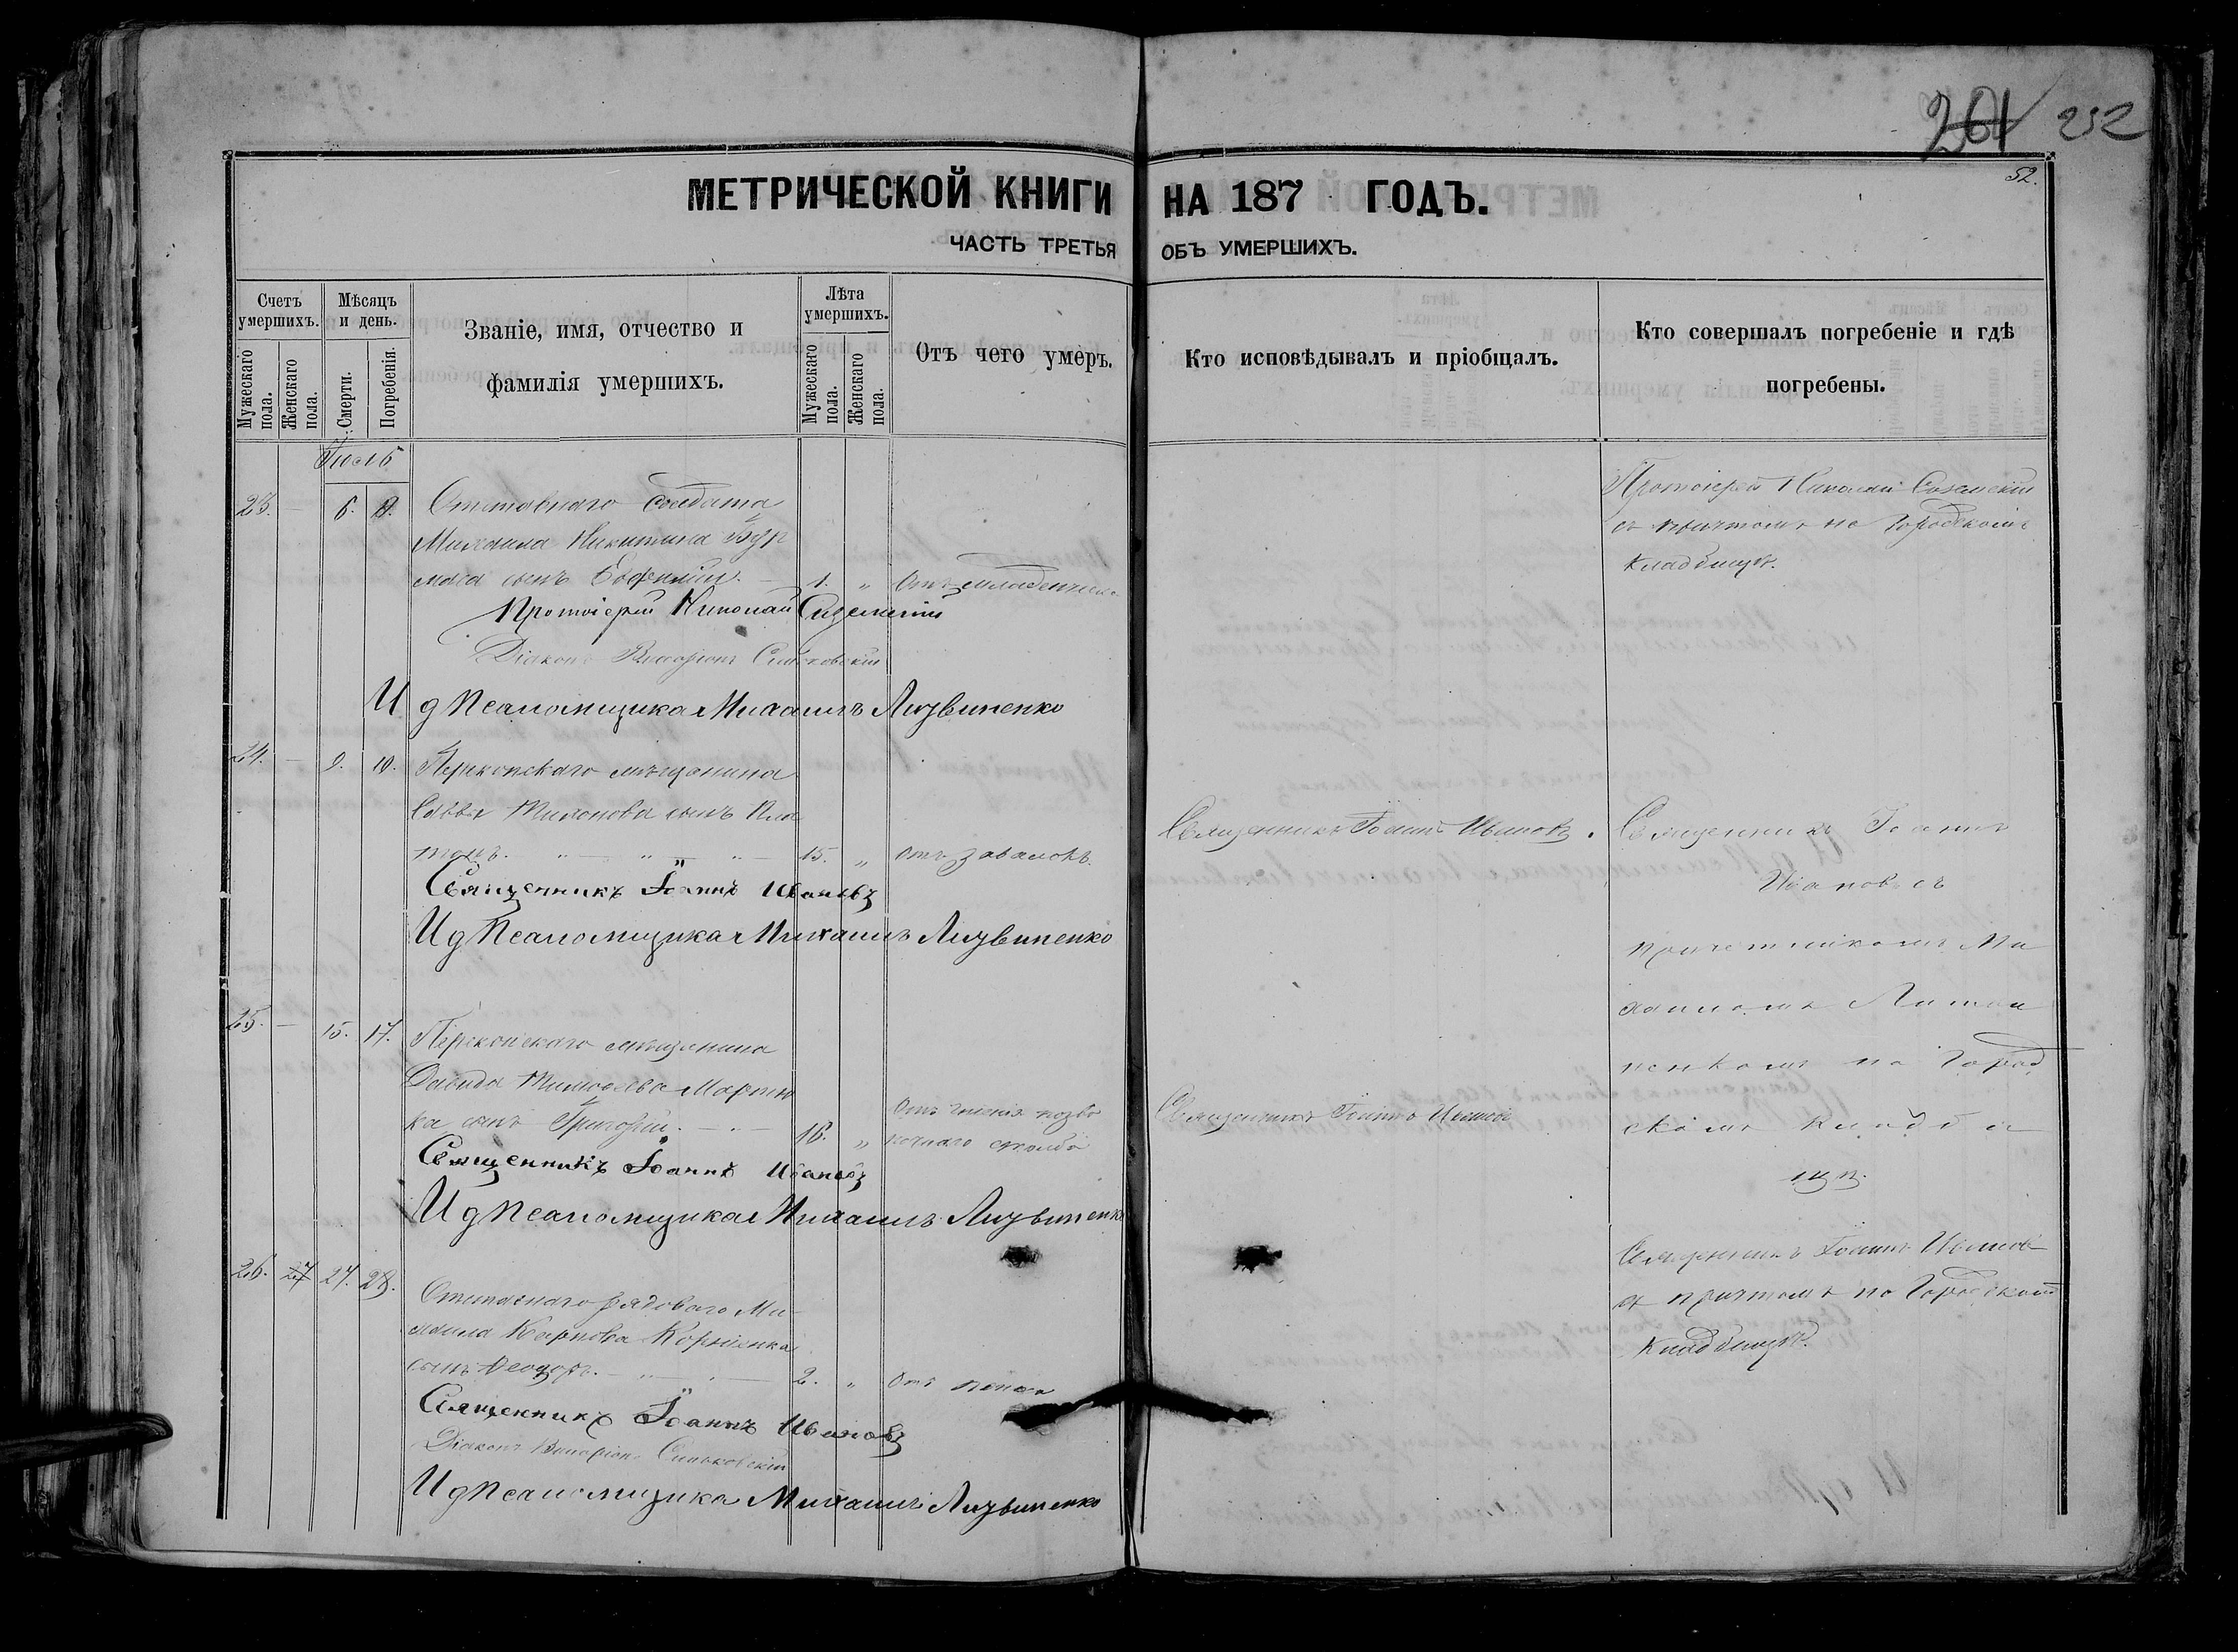 252
52.
МЕТРИЧЕСКОЙ КНИГИ НА 187 ГОДЪ.
ЧАСТЬ ТРЕТЬЯ ОБЪ УМЕРШИХЪ.
Счетъ умершихъ.
Мужескаго пола.
Женскаго пола.
Мѣсяцъ и день.
Смерти.
Погребенія.
Званіе, имя, отчество и
фамилія умершихъ.
Лѣта умершихъ.
Мужескаго пола.
Женскаго пола.
Отъ чего умеръ.
Кто исповѣдывалъ и пріобщалъ.
Кто совершалъ погребеніе и гдѣ
погребены.
Іюль
23. — 6. 8. Отставнаго солдата
Михаила Никитина
сынъ Евфимій. — 1. „ Отъ младенческ
Протоіерей Николай
съ причтомъ на Городскомъ
Кладбищѣ.
Протоіерей Николай
Діаконъ
И д Псаломщика Михаилъ Литвиненко
24. — 9. 10. Перекопскаго мѣщанина
Саввы Тихонова сынъ Пла
тонъ. 15. „ отъ
Священникъ Іоаннъ Ивановъ.
Священникъ Іоаннъ
Ивановъ съ
причетникомъ Ми
хаиломъ Литви
ненкомъ на Город
скомъ Кладби
щѣ.
Священникъ Іоаннъ Ивановъ
И д Псаломщика Михаилъ Литвиненко
25. — 15. 17. Перекопскаго мѣщанина
Давида Тимофѣева Мартын
ка сынъ Григорій. — 16. „ Отъ гніенія позво
ночнаго столба
Священникъ Іоаннъ Ивановъ
Священникъ Іоаннъ Ивановъ
И д Псаломщика Михаилъ Литвиненко
26. 27. 28. Отставнаго рядоваго Ми-
хаила Карпова Корніенка
сынъ Ѳеодоръ. 2. „ Отъ поноса
Священникъ Іоаннъ Ивановъ
съ причтомъ на Городскомъ
Кладбищѣ.
Священникъ Іоаннъ Ивановъ
Діаконъ
И д Псаломщика Михаилъ Литвиненко